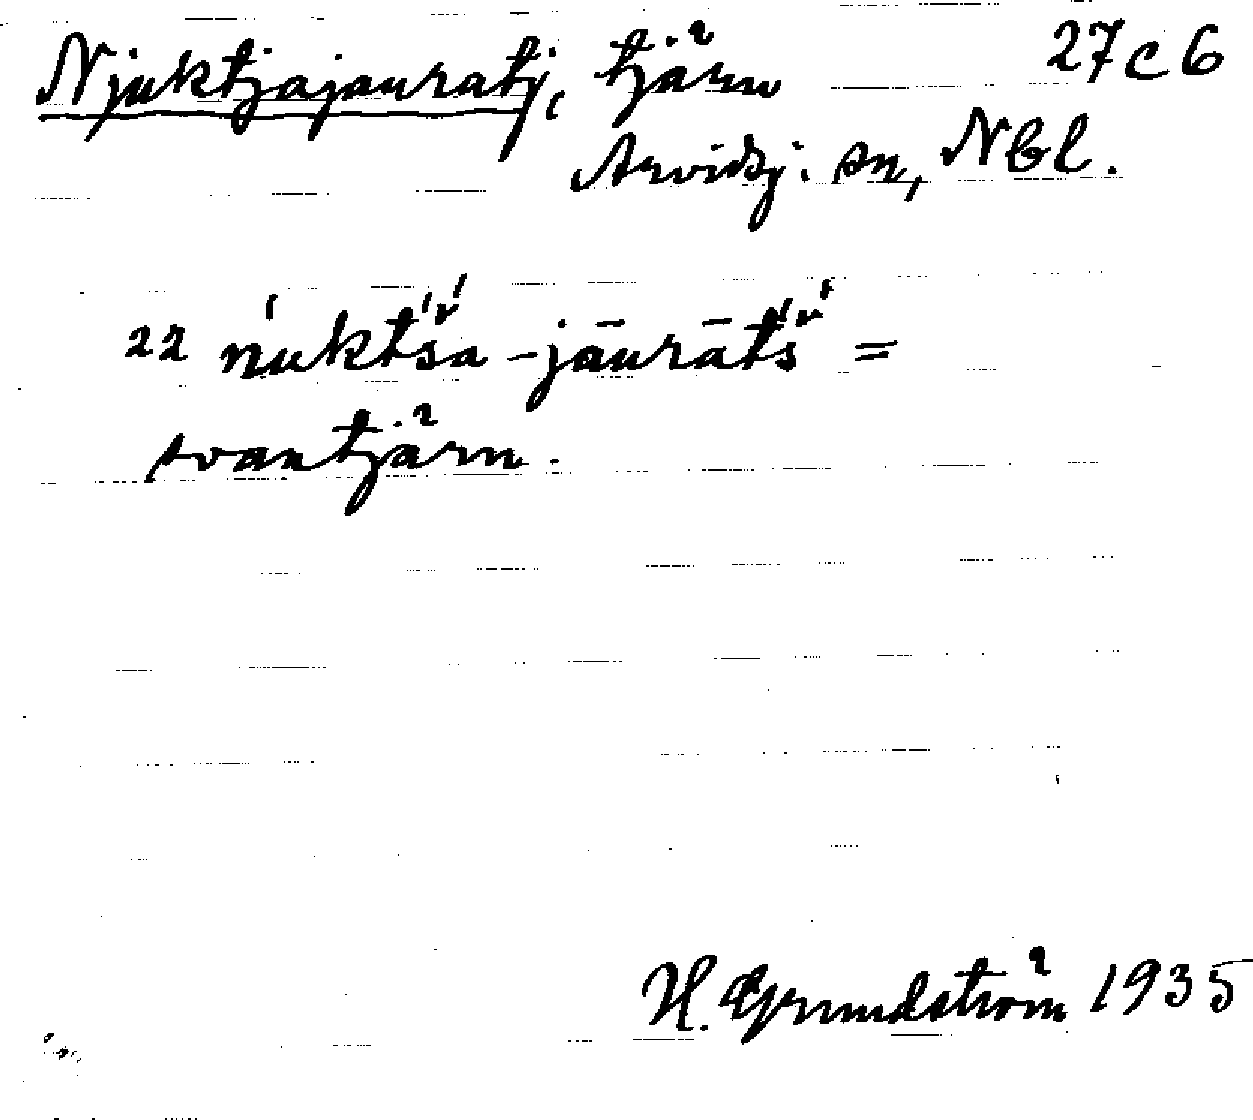 Njuktjajauratj, tjärn 27c6
Arvidsj. sn, Nbl.
22 ńukt́š́a-jāurāt́š́ =
svantjärn.
H. Grundström 1935